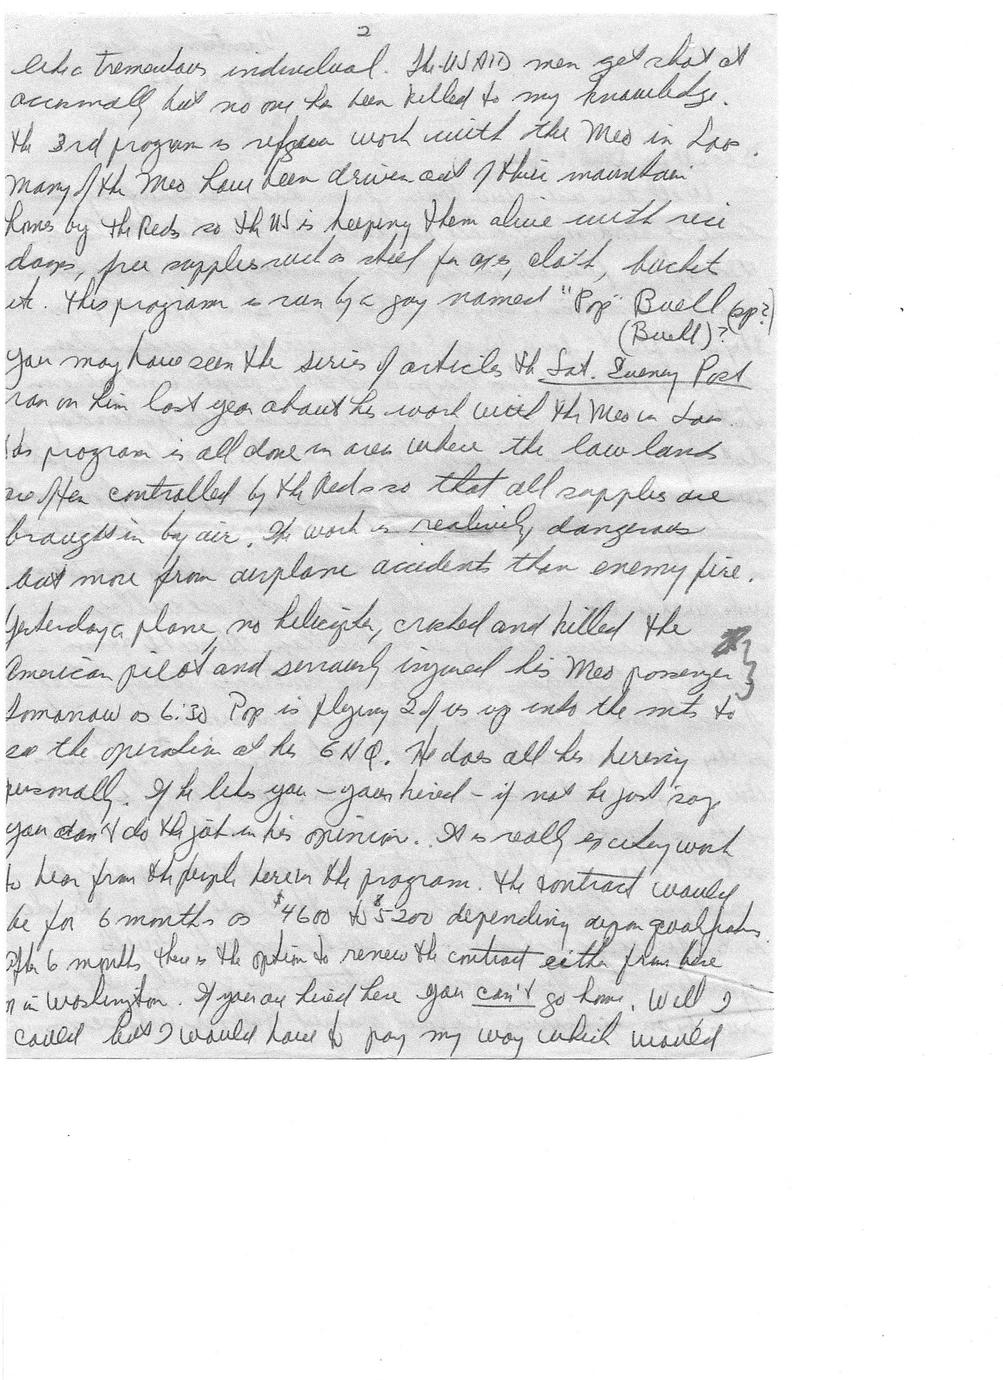 2
like a tremendous individual. The USAID men get shot at
occasionally but no one has been killed to my knowledge.
the 3rd program is refugee work with the Meo in Laos.
Many of the Meo have been driven out of their mountain
homes by the Reds so the US is keeping them alive with rice
drops, free supplies such as steel for axes, cloth, bucket
etc. This program is run by a guy named "Pop" Buell (sp?)
(Buell)?
You may have seen the series of articles the Sat. Evening Post
ran on him last year about his work with the Meo in Laos.
His program is all done in areas where the low lands
are often controlled by the Reds so that all supplies are
brought in by air. The work is relatively dangerous
but more from airplane accidents than enemy fire.
Yesterday a plane, no helicopter, crashed and killed the
American pilot and seriously injured his Meo passenger
Tomorrow at 6:30 Pop is flying 2 of us up into the mts to
see the operation at his HQ. He does all his hiring
personally. If he likes you - your hired - if not he just says
you don't do the job in his opinion. It is really exciting work
to hear from the people here in the program. The contract would
be for 6 months at $4600 to $5200 depending upon qualifications.
After 6 months there is the option to renew the contract either from here
or in Washington. If you are hired here you can't go home. Well, I
could but I would have to pay my way which would